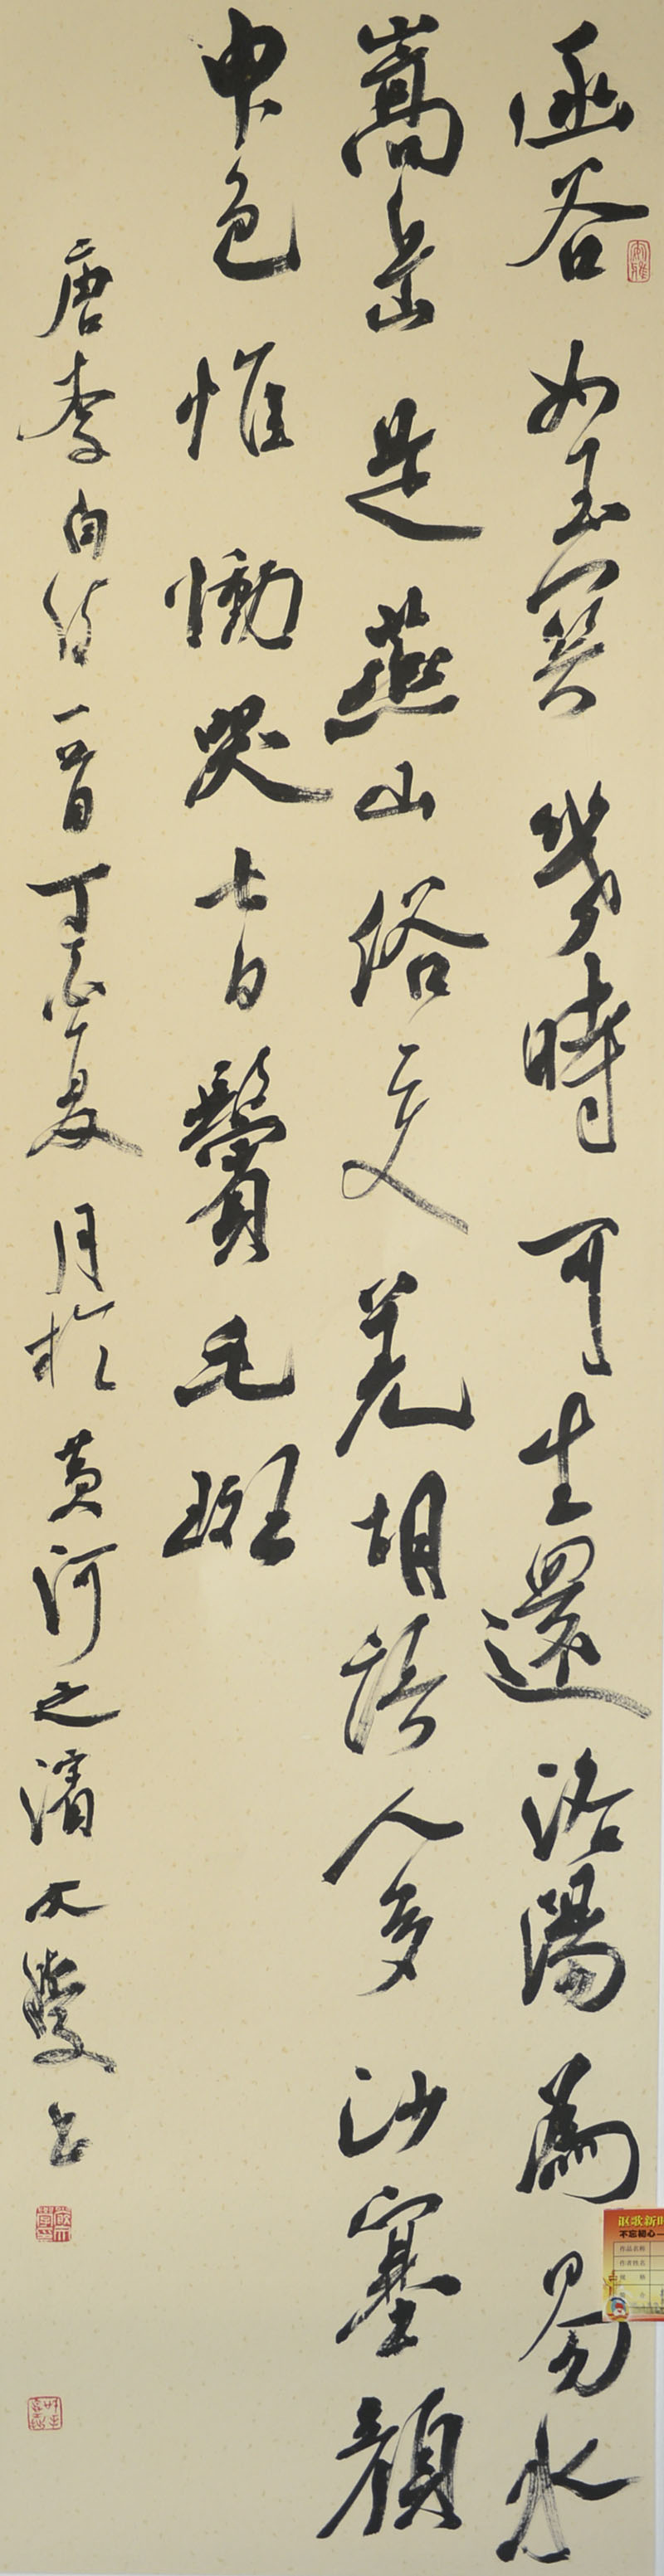 函谷如玉関幾時可生還洛陽為易水
嵩岳是燕山俗变羌胡語人多沙塞顏
申包惟慟哭七日鬢毛斑
唐李白詩一首丁酉夏月於黃河之濱書
讴歌新时
不忘初心一
作品名称
作者姓名